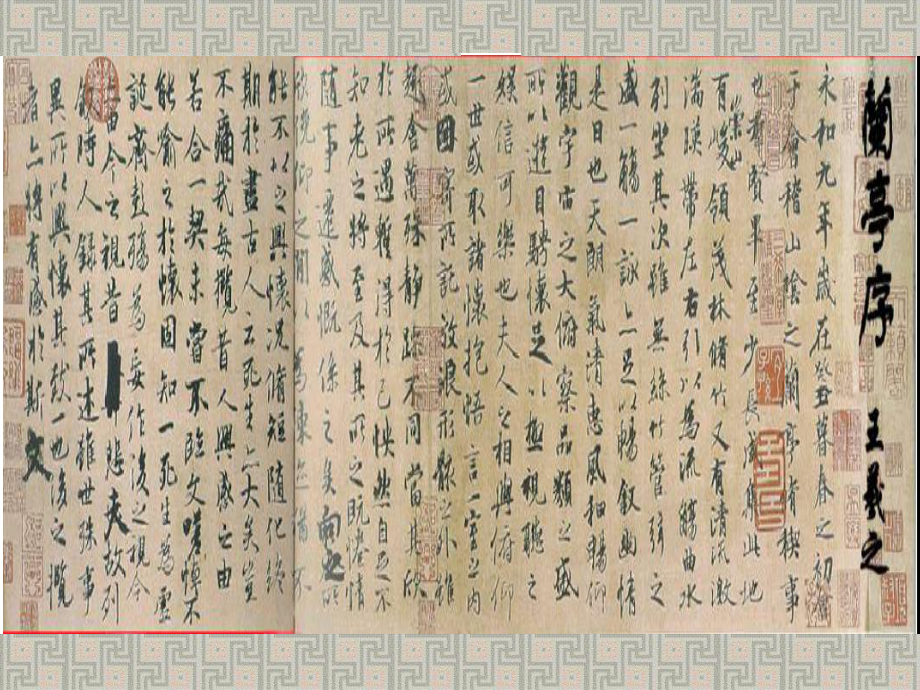 蘭亭序 王羲之
永和九年歲在癸丑暮春之初會
于會稽山陰之蘭亭脩稧事
也羣賢畢至少長咸集此地
有崇山峻領茂林脩竹又有清流激
湍暎帶左右引以為流觴曲水
列坐其次雖無絲竹管弦之
盛一觴一詠亦足以暢叙幽情
是日也天朗氣清惠風和暢仰
觀宇宙之大俯察品類之盛
所以遊目騁懷足以極視聽之
娛信可樂也夫人之相與俯仰
一世或取諸懷抱悟言一室之內
或因寄所託放浪形骸之外雖
趣舍萬殊靜躁不同當其欣
於所遇暫得於己怏然自足不
知老之將至及其所之既惓情
隨事遷感慨係之矣向之所
欣俛仰之間以為陳迹猶不
能不以之興懷況脩短隨化終
期於盡古人云死生亦大矣豈
不痛哉每攬昔人興感之由
若合一契未嘗不臨文嗟悼不
能喻之於懷固知一死生為虛
誕齊彭殤為妄作後之視今
亦由今之視昔悲夫故列
敘時人錄其所述雖世殊事
異所以興懷其致一也後之攬
者亦將有感於斯文